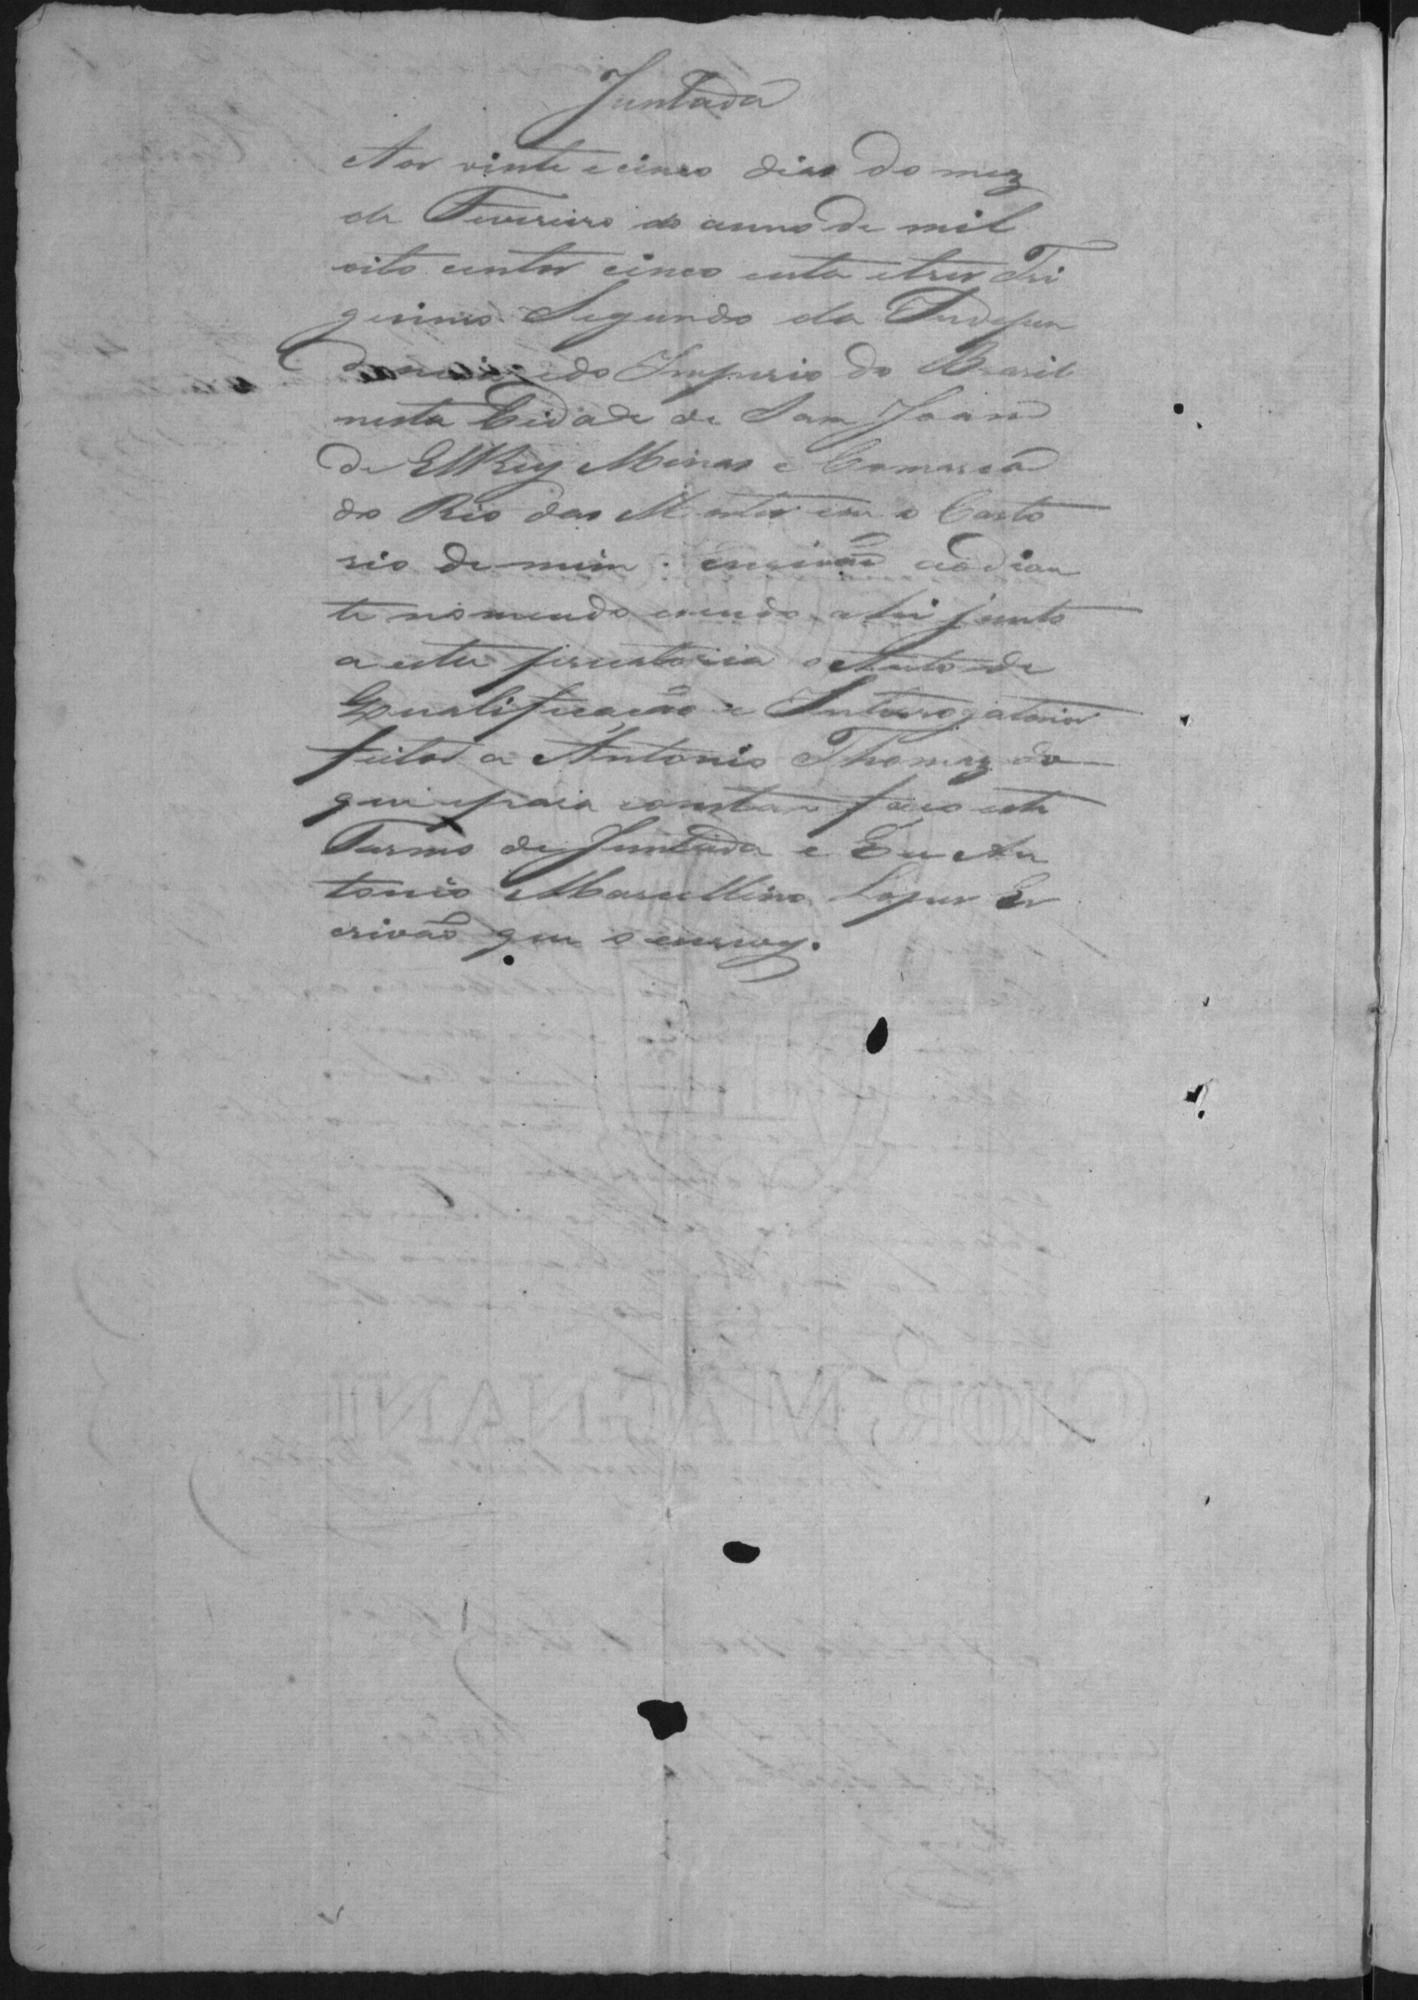 Juntada
Aos vinte e cinco dias do mez
de Fevereiro do anno de mil
oito centos cinco enta e tres Tri
gesimo Segundo da Indepen
dencia e do Imperio do Brasil
nesta Cidade de Sam Joam
de ElRey Minas e Comarca
do Rio das Mortes em o Carto
rio de mim escrivão ao dian
te nomeado sendo ahi junto
a esta precatoria o Auto de
Qualificação e Interrogatorios
feitos a Antonio Thomaz do
que para constar faço este
Termo de Juntada e Eu An
tonio Marcellino Lopes Es
crivão que o escrevy.
GIOR MAGNANI